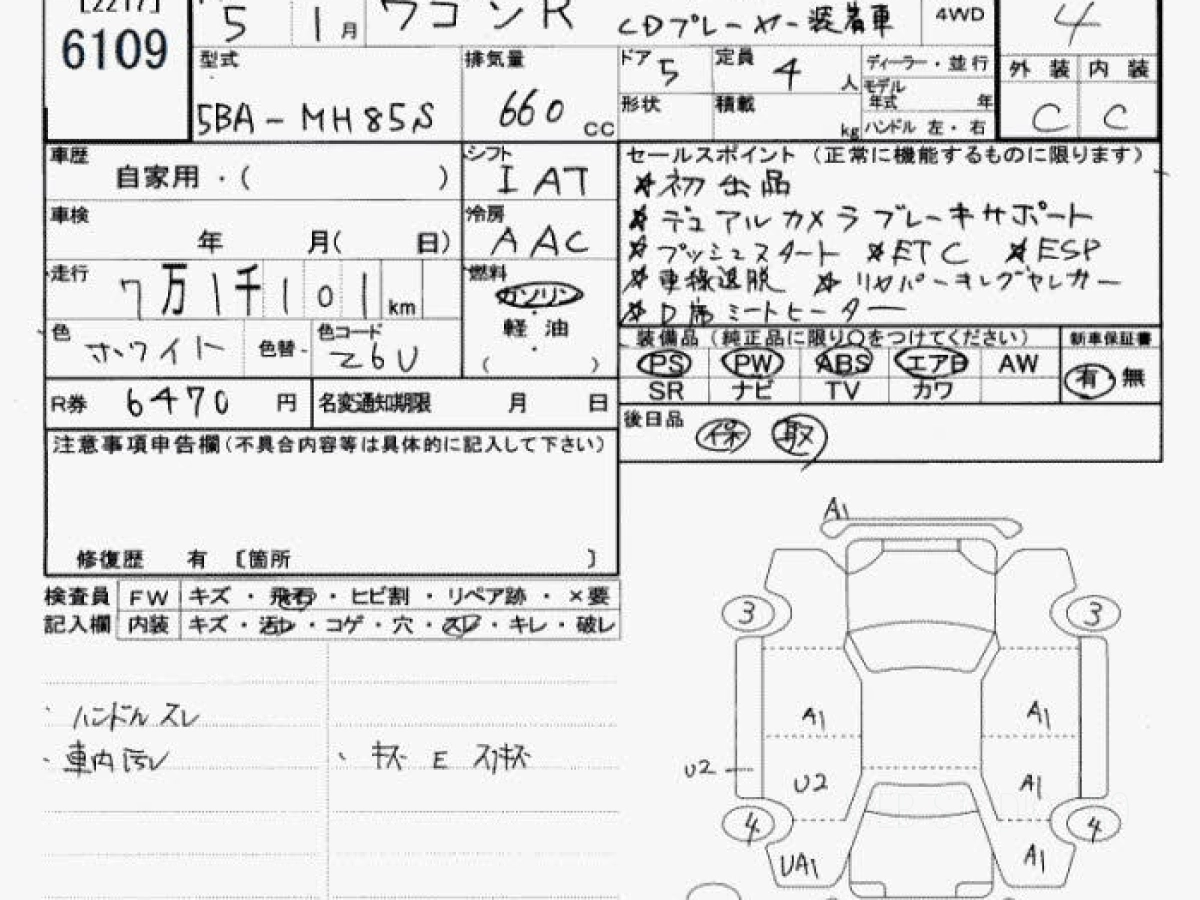 [2217]
6109
5 1月 ワゴンR CDプレーヤー装着車 4WD 4
型式 5BA-MH85S
排気量 660 CC
ドア 5 定員 4 人
形状 積載 kg
ディーラー・並行
モデル年式 年
ハンドル 左・右
外装 内装
C C
車歴 自家用・( )
シフト I AT
車検 年 月( 日)
冷房 AAC
走行 7万1千101km
燃料 ガソリン
軽・油
( )
色 ホワイト 色替 色コード Z6U
R券 6470 円 名変通知期限 月 日
セールスポイント (正常に機能するものに限ります)
☆初出品
☆デュアルカメラブレーキサポート
☆プッシュスタート ☆ETC ☆ESP
☆車線逸脱
☆D席シートヒーター
装備品(純正品に限り○をつけてください) 新車保証書
PS PW ABS エアB AW 有・無
SR ナビ TV カワ
後日品 保 取
注意事項申告欄(不具合内容等は具体的に記入して下さい)
修復歴 有 〔箇所 〕
検査員 FW キズ・飛石・ヒビ割・リペア跡・×要
記入欄 内装 キズ・汚レ・コゲ・穴・スレ・キレ・破レ
・ハンドル スレ
・車内汚レ
・キズ E スリキズ
A1
3 3
A1 A1
U2 U2 A1
4 4
UA1 A1